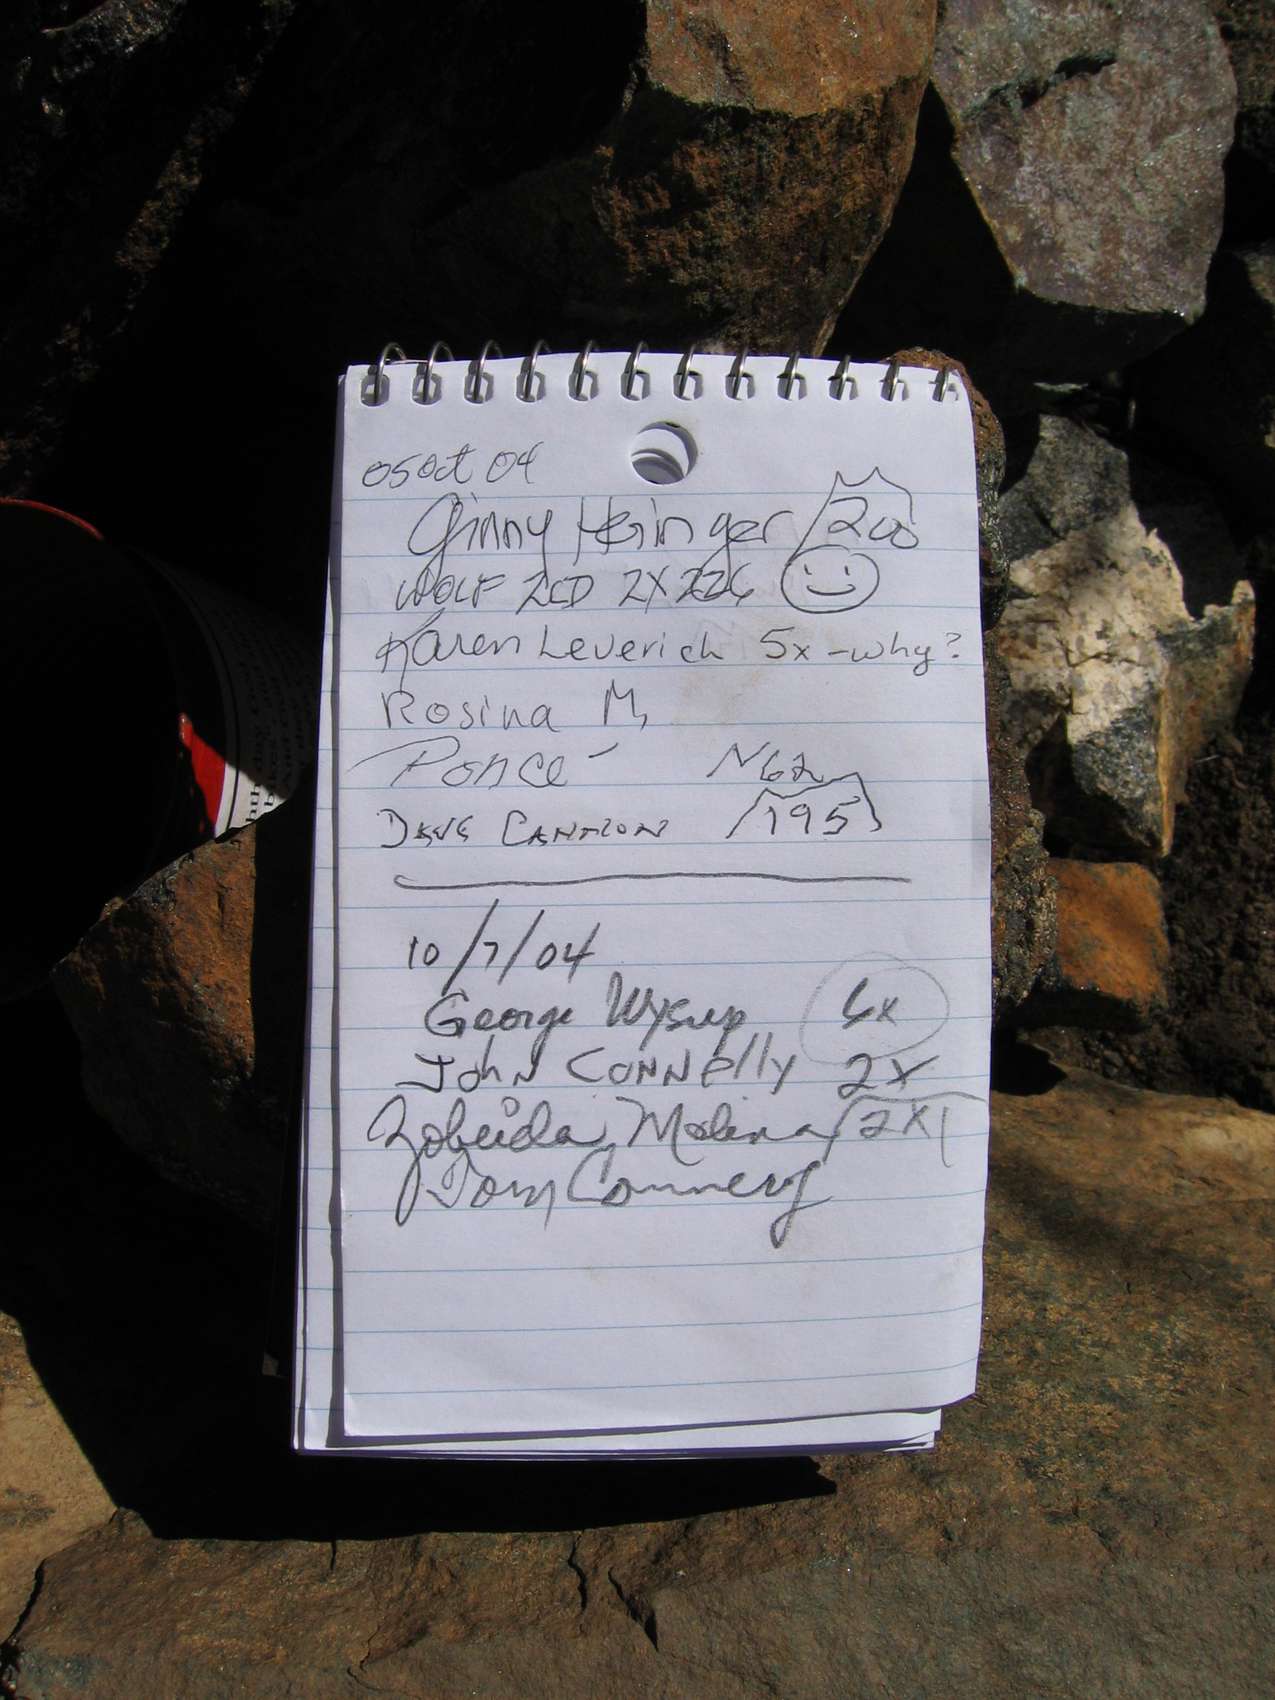 05 Oct 04
Ginny Heringer 200
WOLF 2X
Karen Leverich 5x - why?
Rosina M,
Ponce N62
DAVE CANNON 195
10/7/04
George Wysup 6x
John CONNElly 2X
Zobeida Molina 2X
Tom Connery